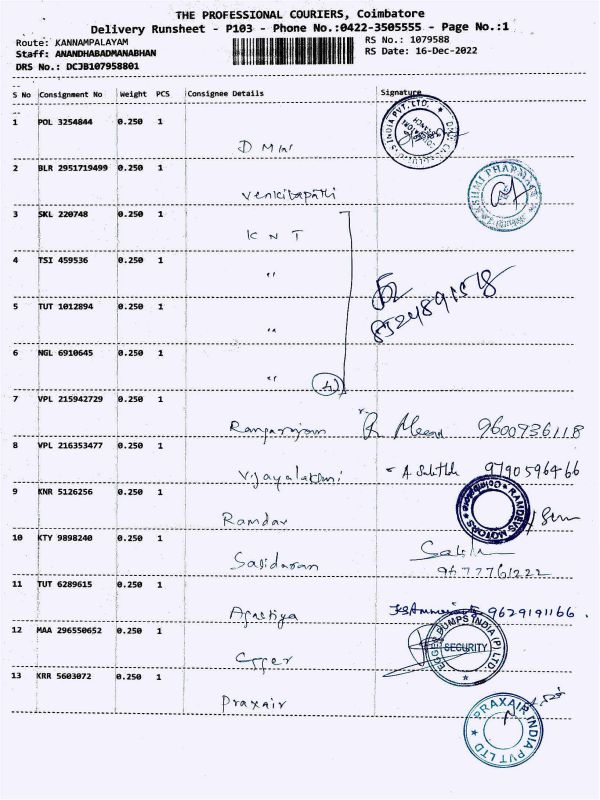 THE PROFESSIONAL COURIERS, Coimbatore
Delivery Runsheet - P103 - Phone No.:0422-3505555 - Page No.:1
Route: KANNAMPALAYAM
RS No.: 1079588
Staff: ANANDHABADMANABHAN
RS Date: 16-Dec-2022
DRS No.: DCJB107958801
S No Consignment No Weight PCS Consignee Details Signature
1 POL 3254844 0.250 1
INDIA PVT. LTD.
2 BLR 2951719499 0.250 1
Venkitapathi
LAKSHMI PHARMA
3 SKL 220748 0.250 1
K N T
4 TSI 459536 0.250 1
"
5 TUT 1012894 0.250 1
8524891518
"
6 NGL 6910645 0.250 1
" 4
7 VPL 215942729 0.250 1
R Meena 9600936118
8 VPL 216353477 0.250 1
Vijayalakshmi 9790596466
9 KNR 5126256 0.250 1
RAMDEVS MOTORS
Ramdev
10 KTY 9898240 0.250 1
Sasidaran
9677761222
11 TUT 6289615 0.250 1
Agastiya 9629191166.
12 MAA 296550652 0.250 1
EGGER PUMPS INDIA (P) LTD.
SECURITY
Egger
13 KRR 5603072 0.250 1
Praxair
PRAXAIR INDIA PVT LTD